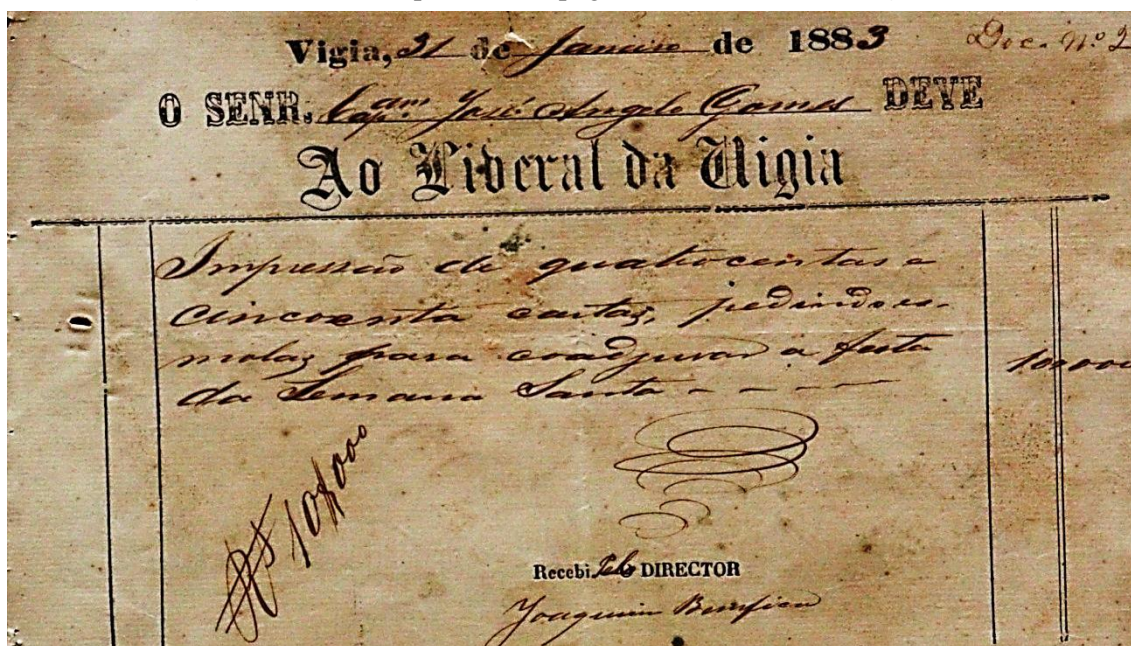 Vigia, 31 de Janeiro de 1883 Doc. Nº 2
O SENR. Capᵃᵐ. José Angelo Gomes DEVE
Ao Liberal da Vigia
Impressão de quatrocentas e
cincoenta cartas, pedindo es-
molas para coadjuvar a festa
da Semana Santa - - - - 10$000
Rs 10$000
Recebi Pelo DIRECTOR
Joaquim Bemfica